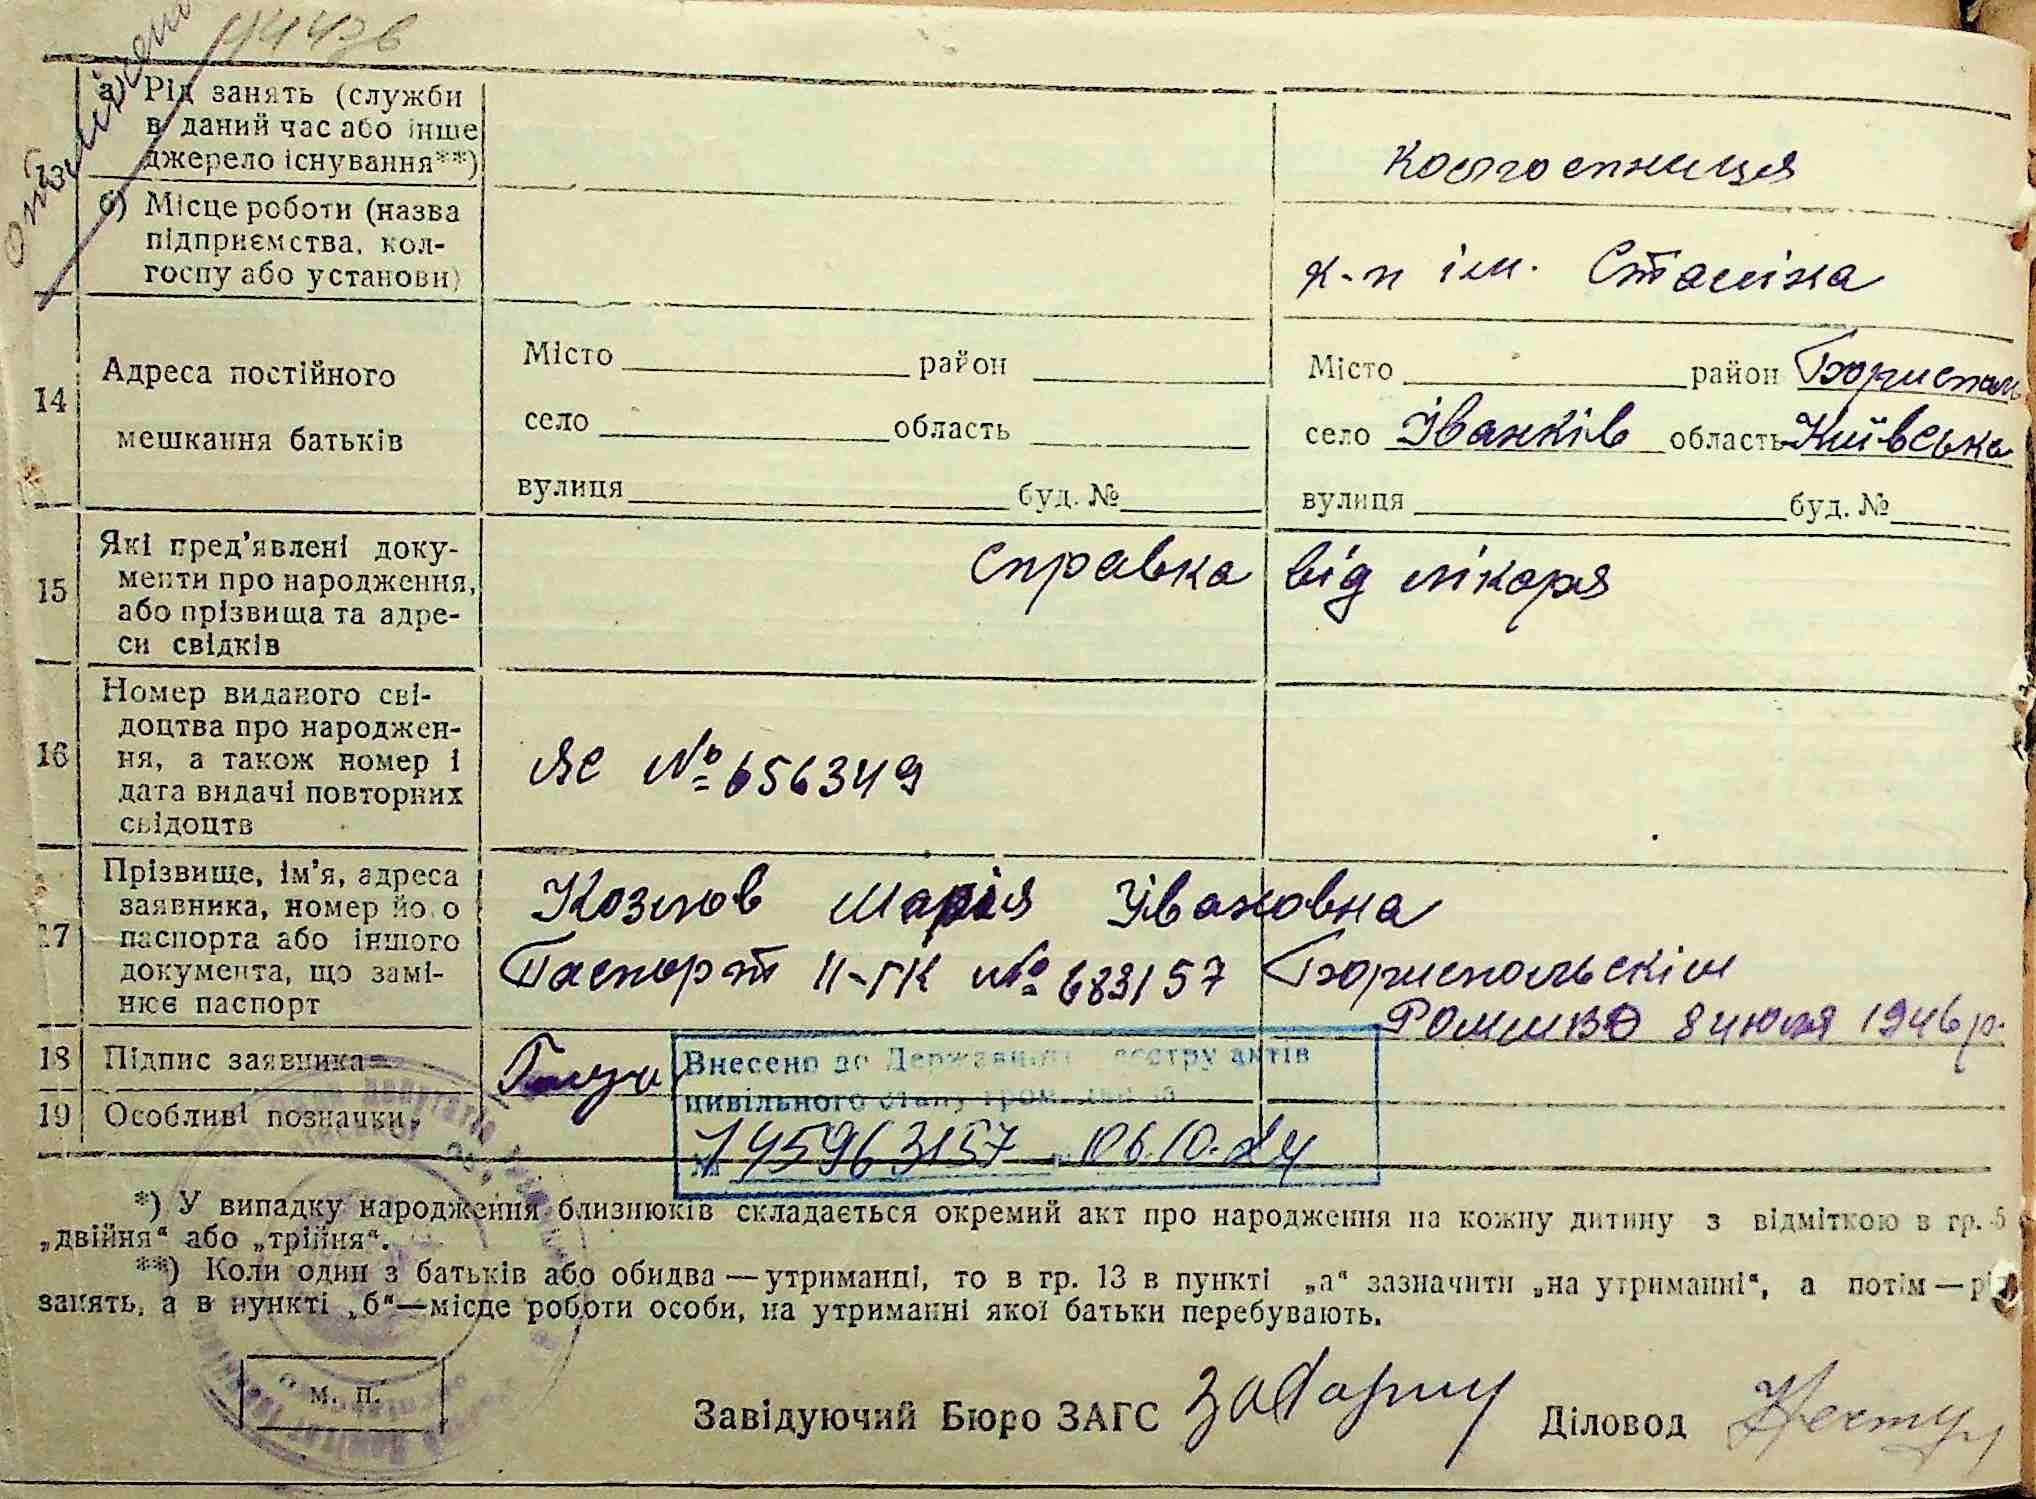 а) Рід занять (служби
в даний час або інше
джерело існування**)
колгоспниця
13
б) Місце роботи (назва
підприємства, кол-
госпу або установи)
к-п ім. Сталіна
14
Адреса постійного
мешкання батьків
Місто район
село область
вулиця буд. №
Місто район Бориспол
село Іванків область Київська
вулиця буд. №
15
Які пред'явлені доку-
менти про народження,
або прізвища та адре-
си свідків
Справка від лікаря
16
Номер виданого сві-
доцтва про народжен-
ня, а також номер і
дата видачі повторних
свідоцтв
ЯС № 656349
17
Прізвище, ім'я, адреса
заявника, номер його
паспорта або іншого
документа, що замі-
нює паспорт
Козлов Марія Івановна
Паспорт II-ГК № 683157 Бориспольскім
1946 р.
18 Підпис заявника
19 Особливі позначки
Внесено до Державного реєстру актів
цивільного стану громадян за
№ 145963157 06.10.24
*) У випадку народження близнюків складається окремий акт про народження на кожну дитину з відміткою в гр. 5
„двійня“ або „трійня“.
**) Коли один з батьків або обидва — утриманці, то в гр. 13 в пункті „а“ зазначити „на утриманні“, а потім — рід
занять, а в пункті „б“—місце роботи особи, на утриманні якої батьки перебувають.
М. П.
Завідуючий Бюро ЗАГС
Діловод